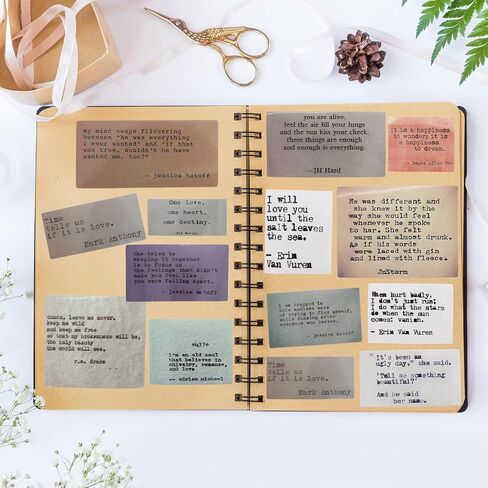 my mind keeps flickering
between "he was everything
i ever wanted" and "if that
was true, wouldn't he have
wanted me, too?"
- jessica katoff
Time
tells us
if it is love.
Mark Anthony
One love.
one heart.
one destiny.
the trick to
keeping it together
is to focus on
the feelings that didn't
make you feel like
you were falling apart.
- jessica katoff
chaos, leave me never.
keep me wild
and keep me free
so that my brokenness will be,
the only beauty
the world will see.
r.m. drake
i'm an old soul
that believes in
chivalry, romance,
and love
- adrian michael
you are alive.
feel the air fill your lungs
and the sun kiss your cheek.
these things are enough
and enough is everything.
- JH Hard
It is a happiness
to wonder; it is
a happiness
to dream.
- Edgar Allan Poe
I will
love you
until the
salt leaves
the sea.
- Erin
Van Vuren
He was different and
she knew it by the
way she would feel
whenever he spoke
to her. She felt
warm and almost drunk.
As if his words
were laced with gin
and lined with fleece.
JmStorm
i am trapped in
this endless maze
of trying to find myself,
while
everyone who leaves.
- Jessica Katoff
When hurt badly,
I don't just run;
I do what the stars
do when the sun
comes: vanish.
- Erin Van Vuren
Time
tells us
if it is love.
Mark Anthony
"It's been an
ugly day," she said.
"Tell me something
beautiful?"
And he said
her name.